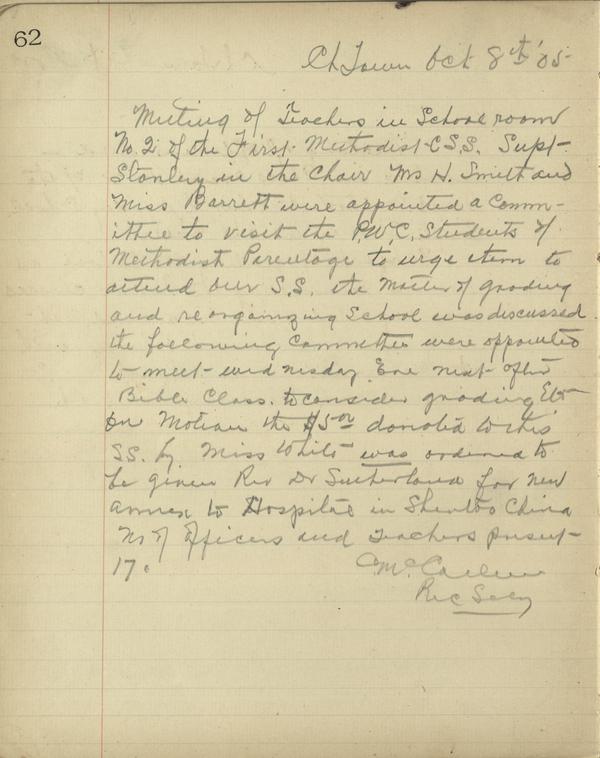 62
ChTown Oct 8th '05
Meeting of Teachers in School room
No. 2 of the First Methodist C S.S. Supt
Stanley in the Chair Ms H. Smith and
Miss Barrett were appointed a Comm-
ittee to visit the P.W.C. Students of
Methodist Parentage to urge them to
attend our S.S. the matter of grading
and reorganizing School was discussed.
the following Committee were appointed
to meet wednesday Eve next after
Bible Class. to consider grading Etc
On Motion the $5 00 donated to this
S.S. by Miss White was ordered to
be given Rev Dr Sutherland for new
annex to Hospital in China
No of Officers and Teachers present
17.
Rec Secy